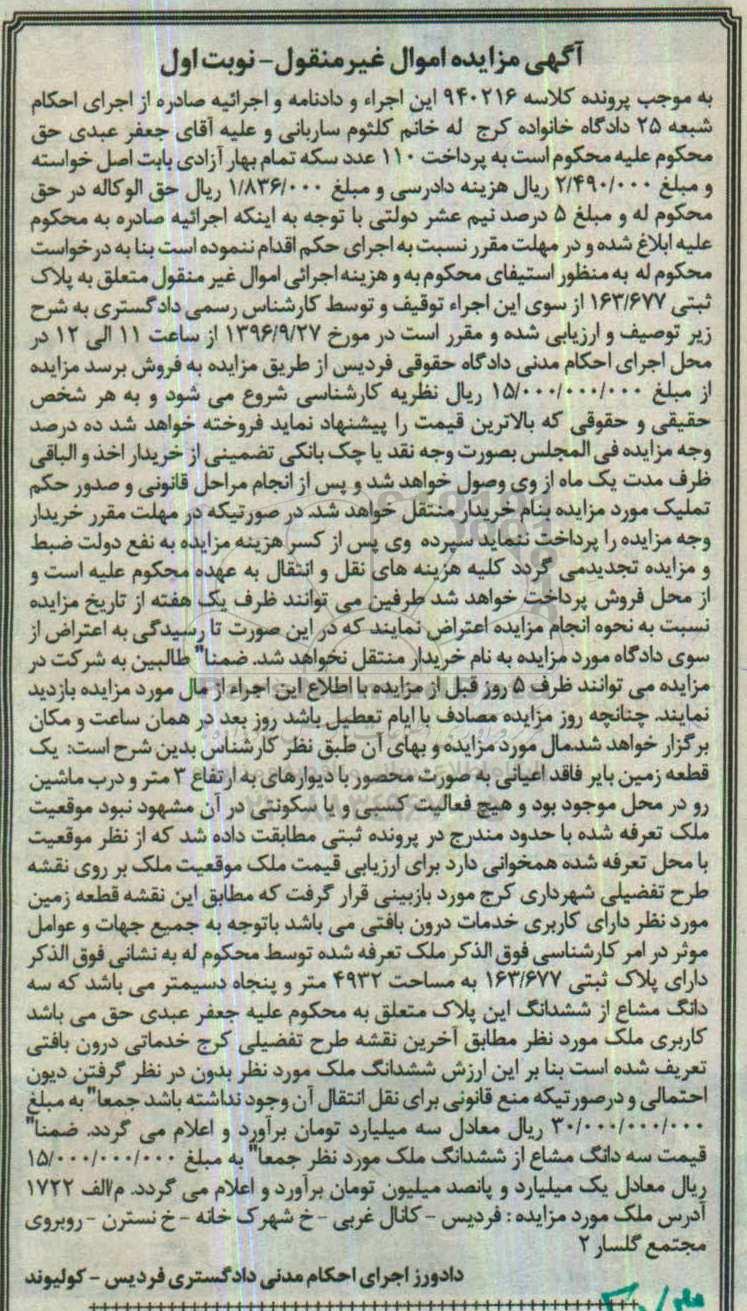 آگهی مزایده اموال غیرمنقول - نوبت اول
به موجب پرونده کلاسه ۹۴۰۲۱۶ این اجراء و دادنامه و اجرائیه صادره از اجرای احکام
شبعه ۲۵ دادگاه خانواده کرج له خانم کلثوم ساربانی و علیه آقای جعفر عبدی حق
محکوم علیه محکوم است به پرداخت ۱۱۰ عدد سکه تمام بهار آزادی بابت اصل خواسته
و مبلغ ۲/۴۹۰/۰۰۰ ریال هزینه دادرسی و مبلغ ۱/۸۳۶/۰۰۰ ریال حق الوکاله در حق
محکوم له و مبلغ ۵ درصد نیم عشر دولتی با توجه به اینکه اجرائیه صادره به محکوم
علیه ابلاغ شده و در مهلت مقرر نسبت به اجرای حکم اقدام ننموده است بنا به درخواست
محکوم له به منظور استیفای محکوم به و هزینه اجرائی اموال غیر منقول متعلق به پلاک
ثبتی ۱۶۳/۶۷۷ از سوی این اجراء توقیف و توسط کارشناس رسمی دادگستری به شرح
زیر توصیف و ارزیابی شده و مقرر است در مورخ ۱۳۹۶/۹/۲۷ از ساعت ۱۱ الی ۱۲ در
محل اجرای احکام مدنی دادگاه حقوقی فردیس از طریق مزایده به فروش برسد مزایده
از مبلغ ۱۵/۰۰۰/۰۰۰/۰۰۰ ریال نظریه کارشناسی شروع می شود و به هر شخص
حقیقی و حقوقی که بالاترین قیمت را پیشنهاد نماید فروخته خواهد شد ده درصد
وجه مزایده فی المجلس بصورت وجه نقد یا چک بانکی تضمینی از خریدار اخذ و الباقی
ظرف مدت یک ماه از وی وصول خواهد شد و پس از انجام مراحل قانونی و صدور حکم
تملیک مورد مزایده بنام خریدار منتقل خواهد شد. در صورتیکه در مهلت مقرر خریدار
وجه مزایده را پرداخت ننماید سپرده وی پس از کسر هزینه مزایده به نفع دولت ضبط
و مزایده تجدیدمی گردد کلیه هزینه های نقل و انتقال به عهده محکوم علیه است و
از محل فروش پرداخت خواهد شد طرفین می توانند ظرف یک هفته از تاریخ مزایده
نسبت به نحوه انجام مزایده اعتراض نمایند که در این صورت تا رسیدگی به اعتراض از
سوی دادگاه مورد مزایده به نام خریدار منتقل نخواهد شد. ضمنا" طالبین به شرکت در
مزایده می توانند ظرف ۵ روز قبل از مزایده با اطلاع این اجراء از مال مورد مزایده بازدید
نمایند. چنانچه روز مزایده مصادف با ایام تعطیل باشد روز بعد در همان ساعت و مکان
برگزار خواهد شد.مال مورد مزایده و بهای آن طبق نظر کارشناس بدین شرح است: یک
قطعه زمین بایر فاقد اعیانی به صورت محصور با دیوارهای به ارتفاع ۳ متر و درب ماشین
رو در محل موجود بود و هیچ فعالیت کسبی و یا سکونتی در آن مشهود نبود موقعیت
ملک تعرفه شده با حدود مندرج در پرونده ثبتی مطابقت داده شد که از نظر موقعیت
با محل تعرفه شده همخوانی دارد برای ارزیابی قیمت ملک موقعیت ملک بر روی نقشه
طرح تفضیلی شهرداری کرج مورد بازبینی قرار گرفت که مطابق این نقشه قطعه زمین
مورد نظر دارای کاربری خدمات درون بافتی می باشد باتوجه به جمیع جهات و عوامل
موثر در امر کارشناسی فوق الذکر ملک تعرفه شده توسط محکوم له به نشانی فوق الذکر
دارای پلاک ثبتی ۱۶۳/۶۷۷ به مساحت ۴۹۳۲ متر و پنجاه دسیمتر می باشد که سه
دانگ مشاع از ششدانگ این پلاک متعلق به محکوم علیه جعفر عبدی حق می باشد
کاربری ملک مورد نظر مطابق آخرین نقشه طرح تفضیلی کرج خدماتی درون بافتی
تعریف شده است بنا بر این ارزش ششدانگ ملک مورد نظر بدون در نظر گرفتن دیون
احتمالی و درصورتیکه منع قانونی برای نقل انتقال آن وجود نداشته باشد جمعا" به مبلغ
۳۰/۰۰۰/۰۰۰/۰۰۰ ریال معادل سه میلیارد تومان برآورد و اعلام می گردد. ضمنا"
قیمت سه دانگ مشاع از ششدانگ ملک مورد نظر جمعا" به مبلغ ۱۵/۰۰۰/۰۰۰/۰۰۰
ریال معادل یک میلیارد و پانصد میلیون تومان برآورد و اعلام می گردد. م/الف ۱۷۲۲
آدرس ملک مورد مزایده : فردیس - کانال غربی - خ شهرک خانه - خ نسترن - روبروی
مجتمع گلسار ۲
دادورز اجرای احکام مدنی دادگستری فردیس - کولیوند